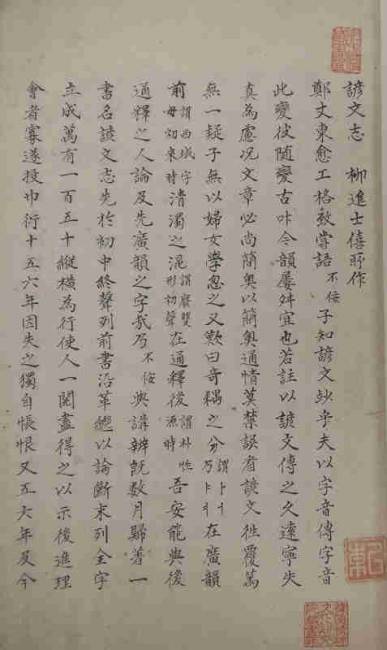 諺文志 柳進士僖所作
鄭丈東愈工格致嘗語不佞子知諺文妙乎夫以字音傳字音
此變彼隨變古叶今韻屢舛宜也若註以諺文傳之久遠寧失
真為慮况文章必尚簡奧以簡奧通情莫禁誤看諺文往覆萬
無一疑子無以婦女學忽之又歎曰奇耦之分謂乃在廣韻
前謂西域字母初來時清濁之混謂廢雙形初聲在通釋後謂朴性源時吾安能與後
通釋之人論及先廣韻之字哉乃不佞與講辨旣數月歸著一
書名諺文志先於初中終聲列前書沿革繼以論斷末列全字
立成萬有一百五十縱橫為行使人一閱盡得之以示後進理
會者寡遂投巾衍十五六年因失之獨自悵恨又五六年及今